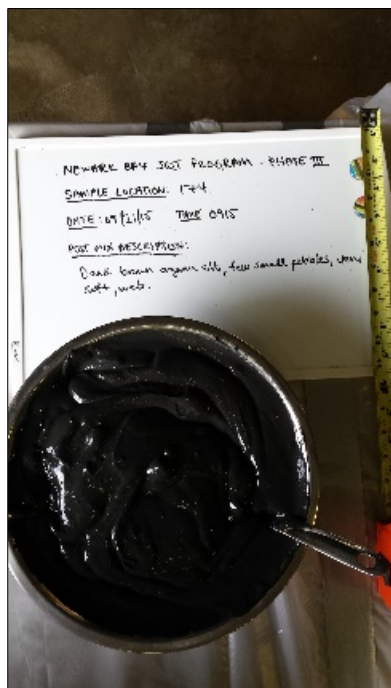 NEWARK BAY SQT PROGRAM - PHASE III
SAMPLE LOCATION: 174
DATE: 09/21/15 TIME 0915
POST MIX DESCRIPTION:
Dark brown organic silt, few small pebbles, very
soft, wet.